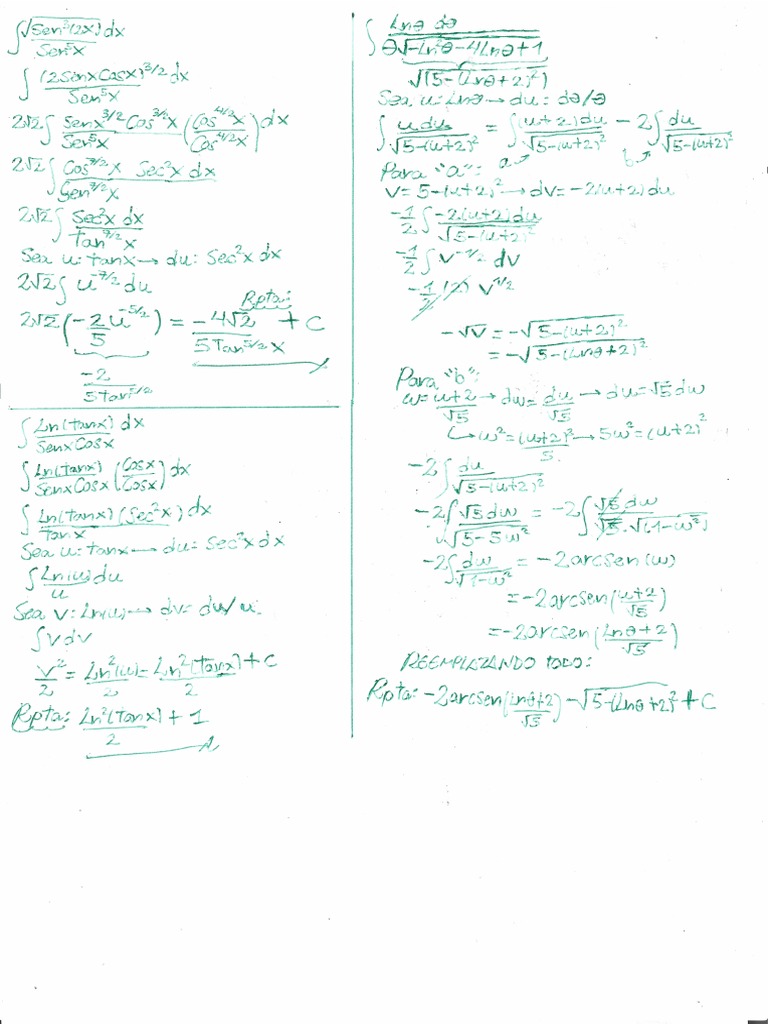 ∫ √(Sen³(2x)) dx / Sen⁵x
∫ (2SenxCosx)^3/2 dx / Sen⁵x
2√2 ∫ Senx^3/2 Cos^3/2x / Sen⁵x (Cos^4/2x / Cos^4/2x) dx
2√2 ∫ Cos^7/2x Sec²x dx / Sen^7/2x
2√2 ∫ Sec²x dx / Tan^7/2x
Sea u: tanx → du: Sec²x dx
2√2 ∫ u^-7/2 du
Rpta:
2√2 (-2u^-5/2 / 5) = -4√2 / 5Tan^5/2x + C
-2 / 5Tan^5/2
∫ Ln(tanx) dx / SenxCosx
∫ Ln(tanx) / SenxCosx (Cosx / Cosx) dx
∫ Ln(tanx) (Sec²x) dx / tanx
Sea u: tanx → du: Sec²x dx
∫ Ln(u) du / u
Sea v: Ln(u) → dv = du/u
∫ v dv
v²/2 = Ln²(u)/2 = Ln²(tanx)/2 + C
Rpta: Ln²(tanx)/2 + 1
∫ Lnθ dθ / θ√(-Ln²θ-4Lnθ+1)
√(5-(Lnθ+2)²)
Sea u: Lnθ → du: dθ/θ
∫ u du / √(5-(u+2)²) = ∫ (u+2)du / √(5-(u+2)²) - 2∫ du / √(5-(u+2)²)
a b
Para "a":
V = 5-(u+2)² → dv = -2(u+2)du
-1/2 ∫ -2(u+2)du / √(5-(u+2)²)
-1/2 ∫ v^-1/2 dv
-1/2 (2) v^1/2
-√v = -√(5-(u+2)²)
= -√(5-(Lnθ+2)²)
Para "b":
w = u+2/√5 → dw = du/√5 → du = √5 dw
↳ w² = (u+2)²/5 → 5w² = (u+2)²
-2∫ du / √(5-(u+2)²)
-2∫ √5 dw / √(5-5w²) = -2∫ √5 dw / √5·√(1-w²)
-2∫ dw / √(1-w²) = -2arcsen(w)
= -2arcsen(u+2/√5)
= -2arcsen(Lnθ+2/√5)
REEMPLAZANDO TODO:
Rpta: -2arcsen(Lnθ+2/√5) - √(5-(Lnθ+2)²) + C